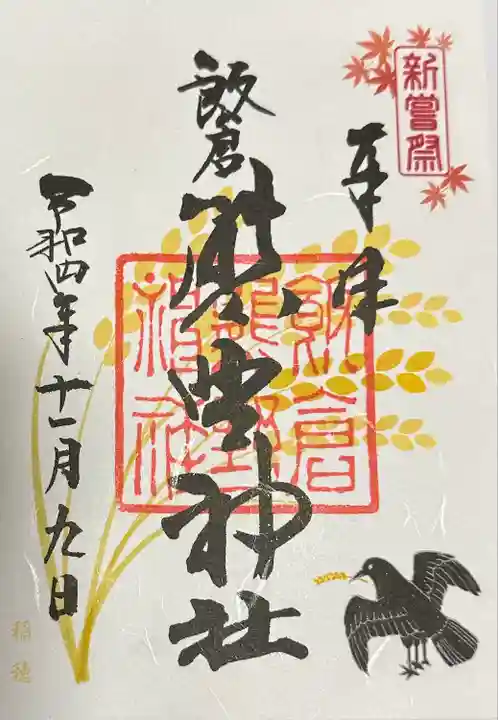 新嘗祭
奉拝
飯倉
熊野神社
飯倉熊野神社
令和四年十一月九日
稲穂